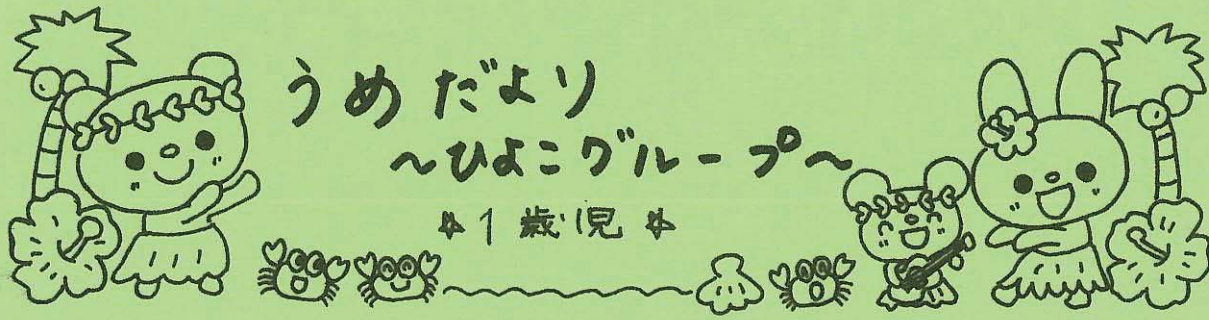 うめだより
～ひよこグループ～
☆1歳児☆